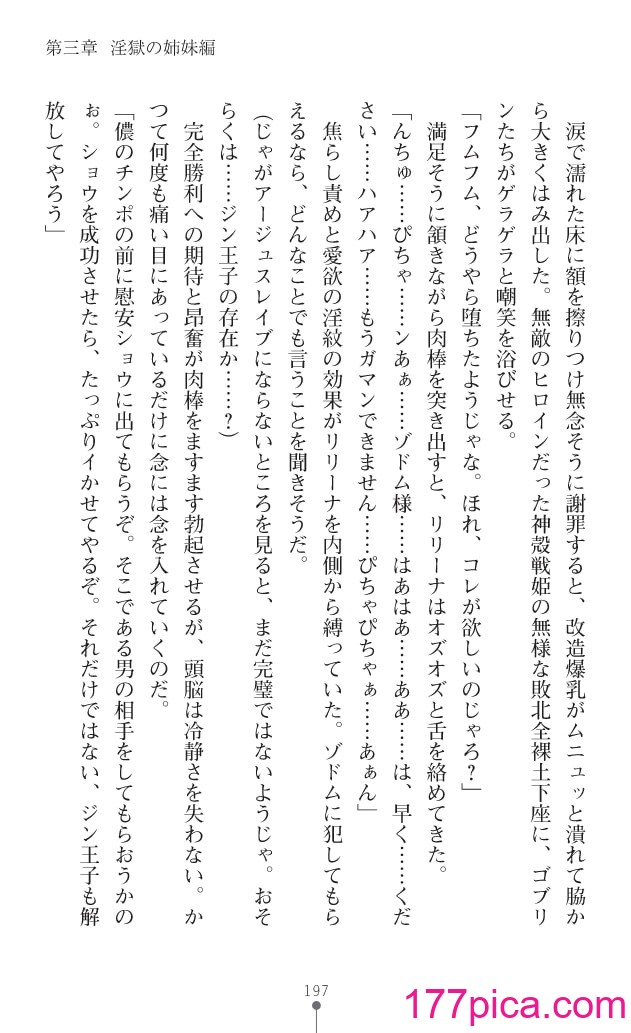 第三章　淫獄の姉妹編
　涙で濡れた床に額を擦りつけ無念そうに謝罪すると、改造爆乳がムニュッと潰れて脇か
ら大きくはみ出した。無敵のヒロインだった神殻戦姫の無様な敗北全裸土下座に、ゴブリ
ンたちがゲラゲラと嘲笑を浴びせる。
「フムフム、どうやら堕ちたようじゃな。ほれ、コレが欲しいのじゃろ？」
　満足そうに頷きながら肉棒を突き出すと、リリーナはオズオズと舌を絡めてきた。
「んちゅ……ぴちゃ……ンあぁ……ゾドム様……はあはあ……ああ……は、早く……くだ
さい……ハアハア……もうガマンできません……ぴちゃぴちゃぁ……あぁん」
　焦らし責めと愛欲の淫紋の効果がリリーナを内側から縛っていた。ゾドムに犯してもら
えるなら、どんなことでも言うことを聞きそうだ。
（じゃがアージュスレイブにならないところを見ると、まだ完璧ではないようじゃ。おそ
らくは……ジン王子の存在か……？）
　完全勝利への期待と昂奮が肉棒をますます勃起させるが、頭脳は冷静さを失わない。か
つて何度も痛い目にあっているだけに念には念を入れていくのだ。
「儂のチンポの前に慰安ショウに出てもらうぞ。そこである男の相手をしてもらおうかの
ぉ。ショウを成功させたら、たっぷりイかせてやるぞ。それだけではない、ジン王子も解
放してやろう」
197
177pica.com